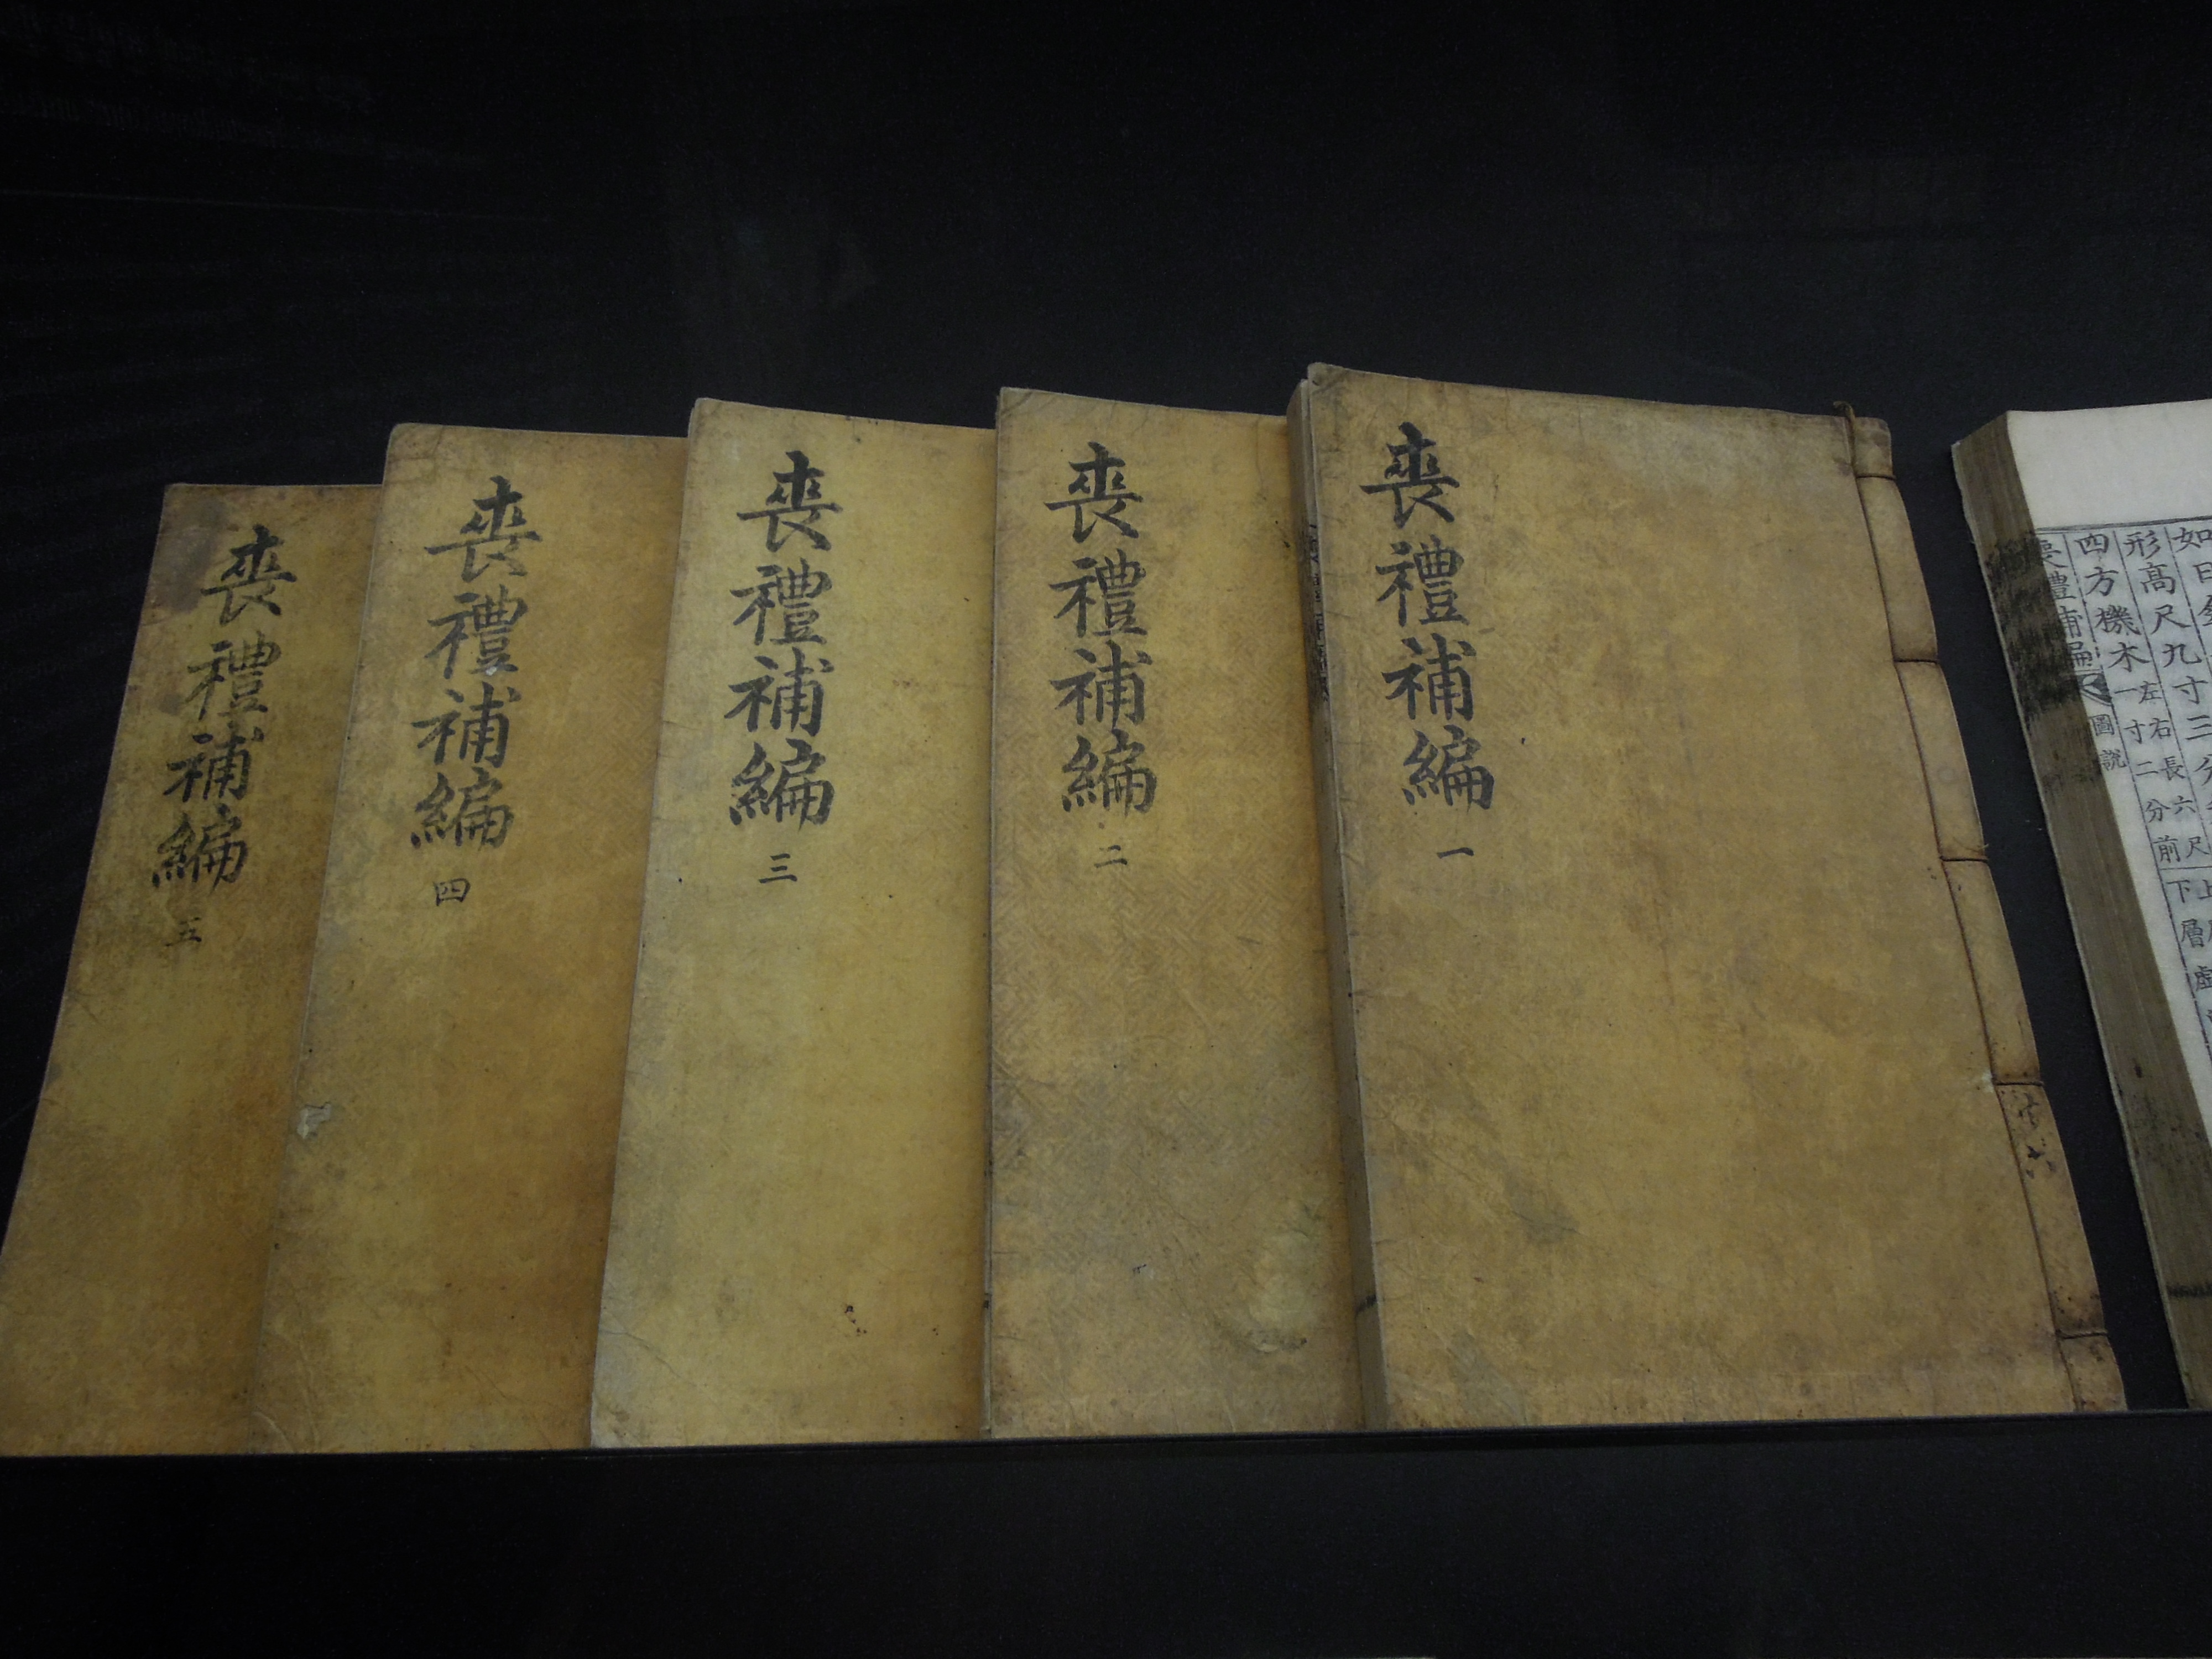 喪禮補編 一
喪禮補編 二
喪禮補編 三
喪禮補編 四
喪禮補編 五
形高尺九寸三分
左右長六尺
一寸二分前
四方機木
下層虛
喪禮補編 圖說